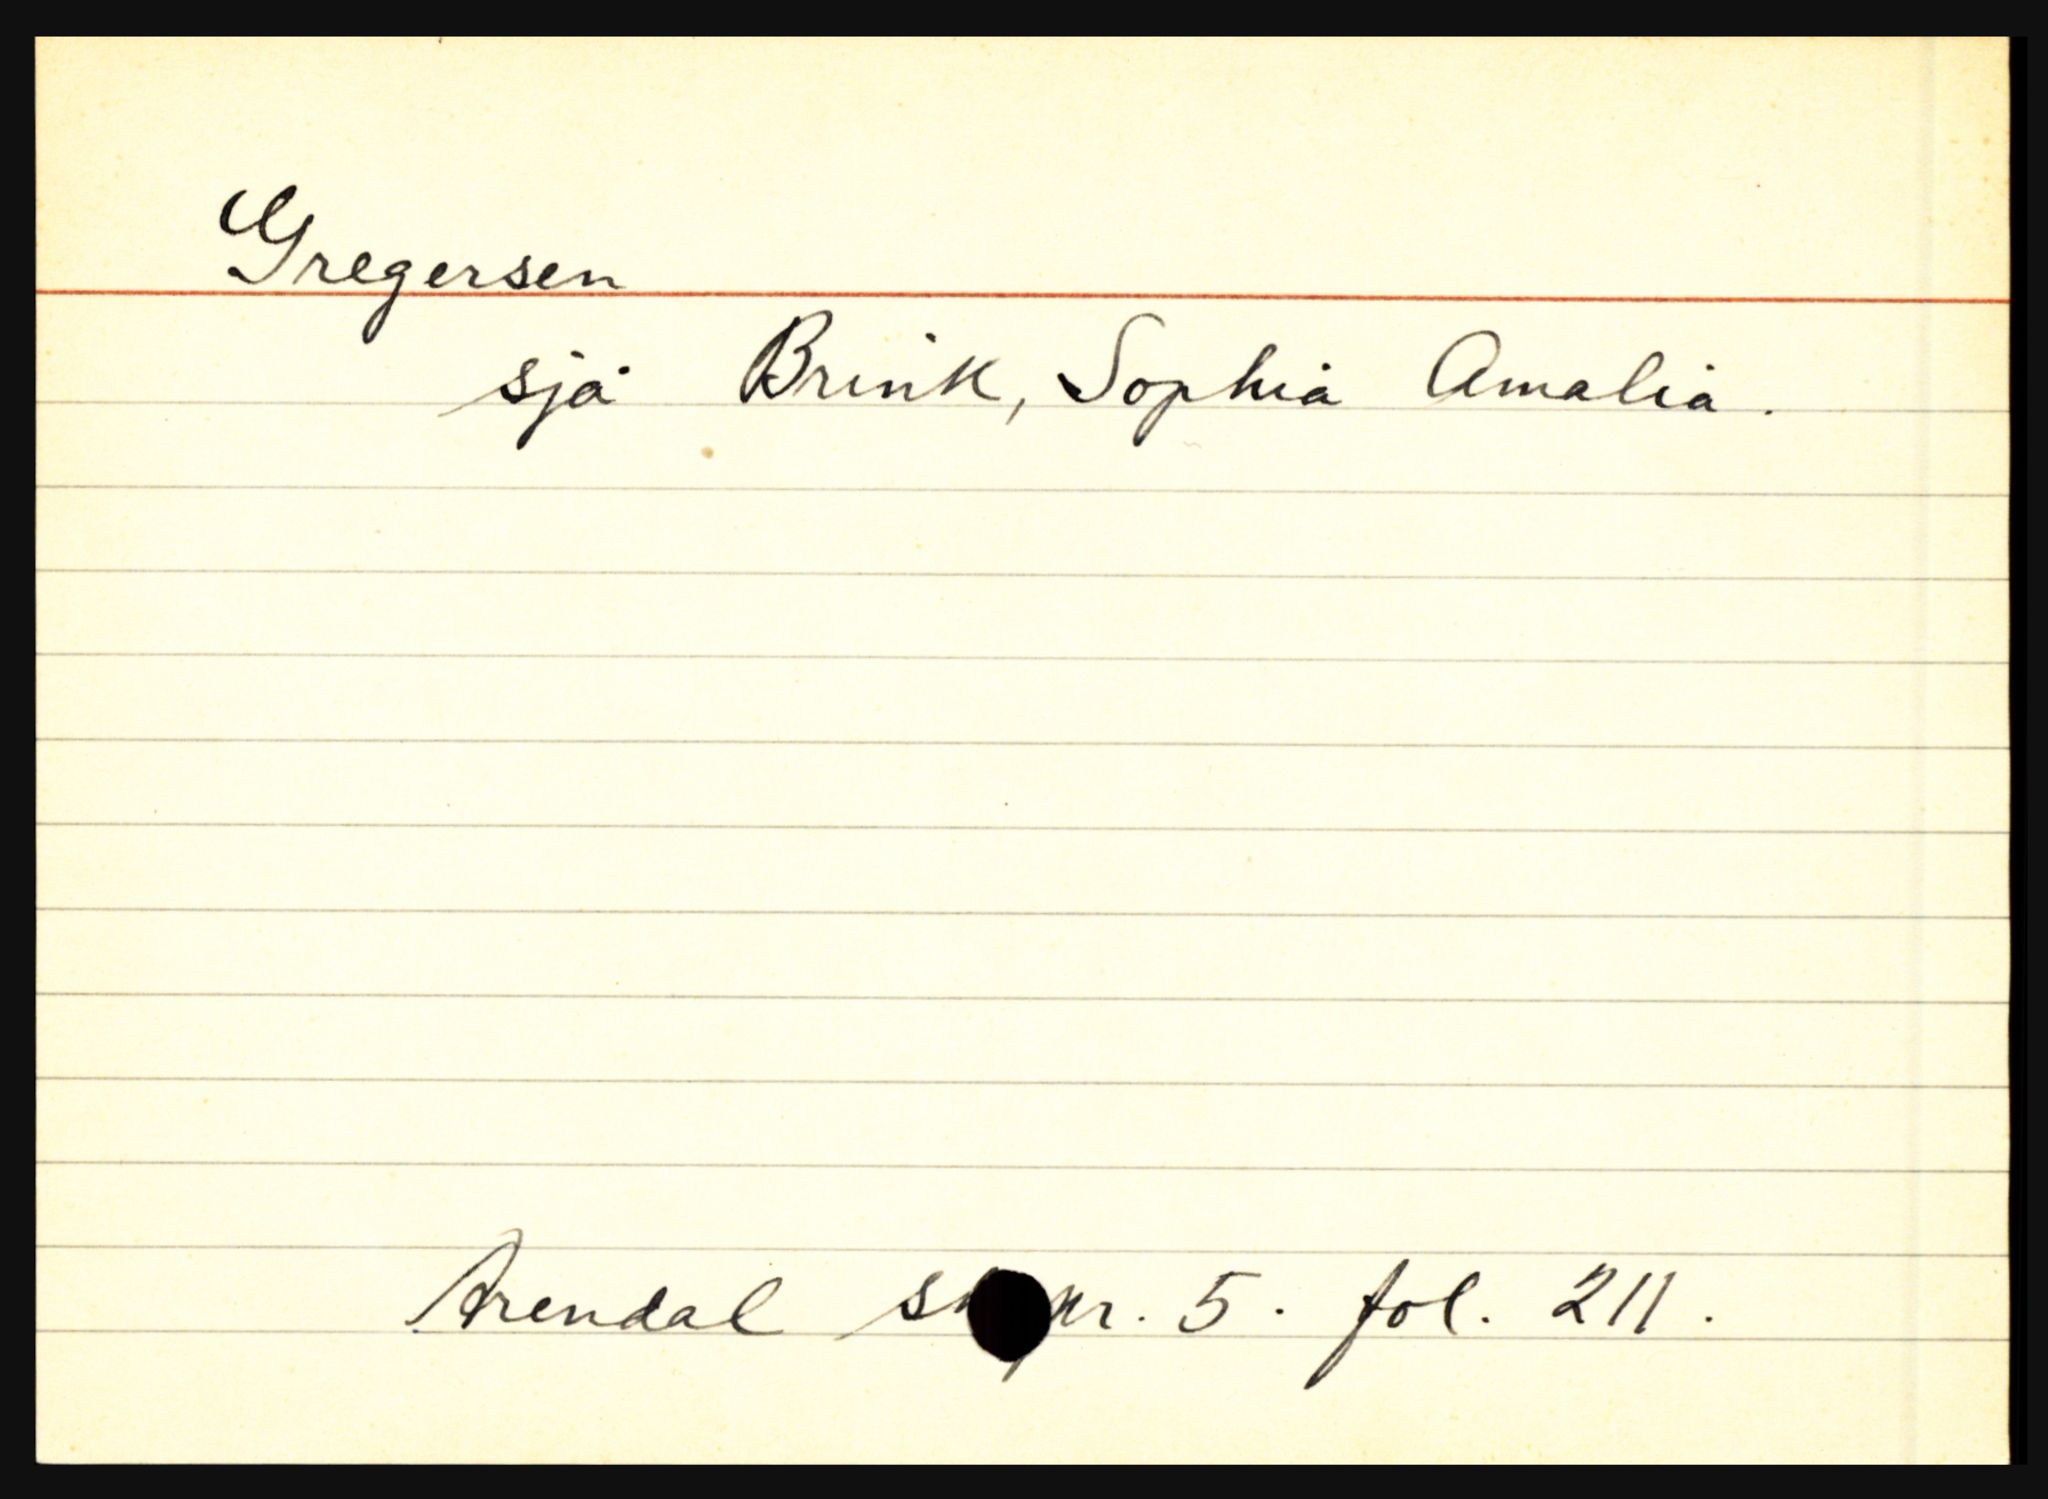 Gregersen
sjå Brink, Sophia Amalia.
Arendal nr. 5. fol. 211.